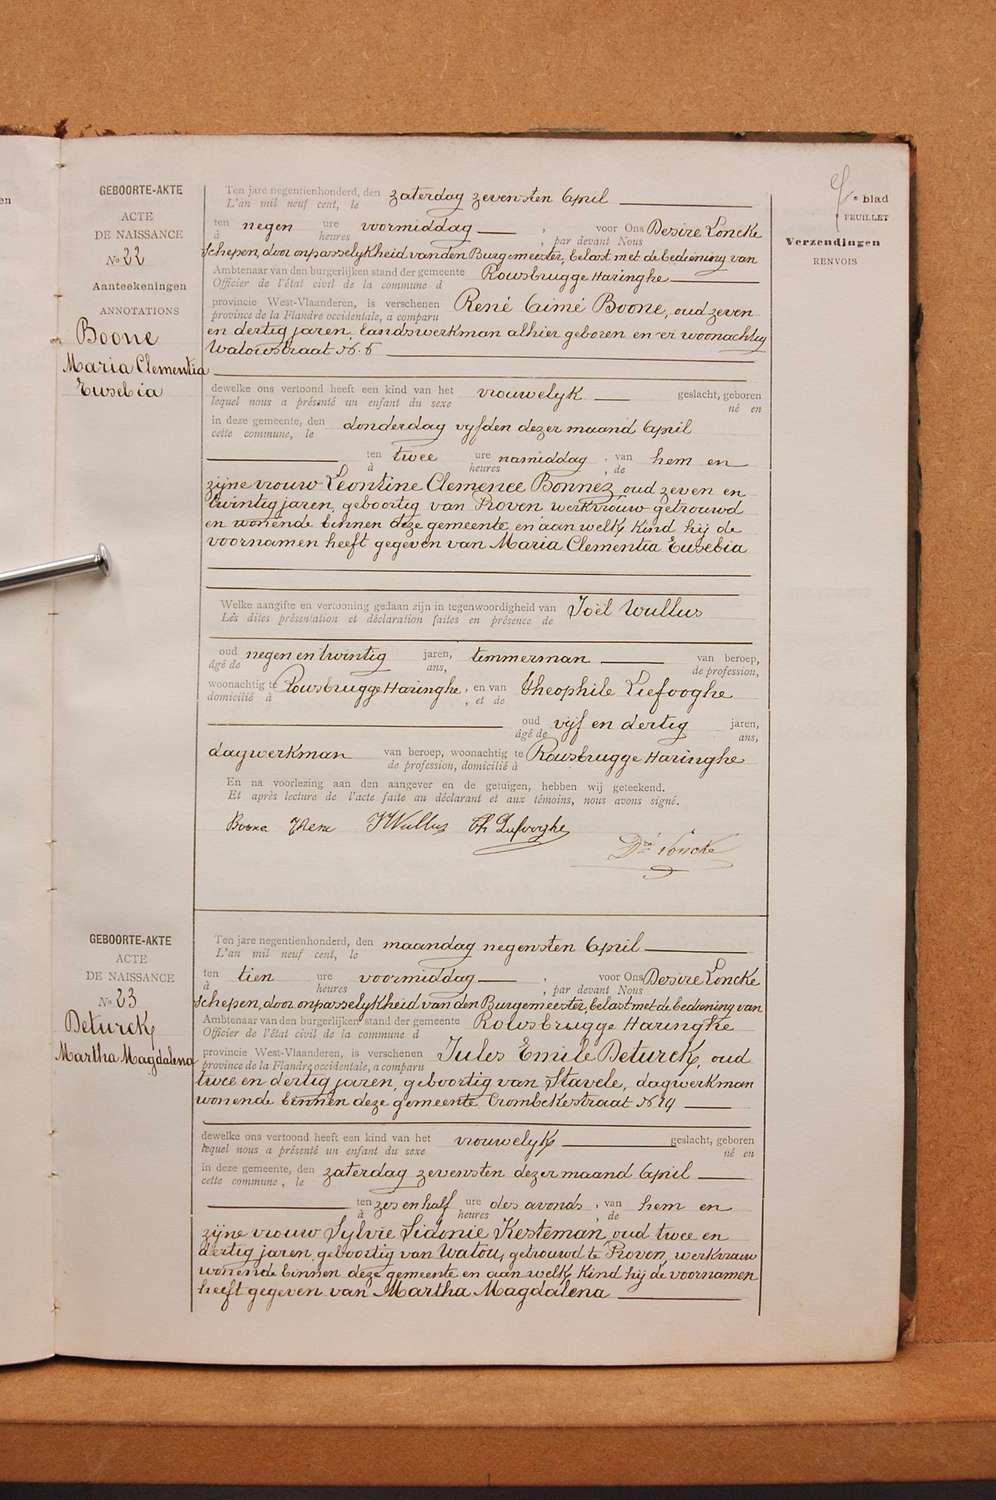 GEBOORTE-AKTE
ACTE
DE NAISSANCE
No 22
Aanteekeningen
ANNOTATIONS
Boone
Maria Clementia
Eusebia
Ten jare negentienhonderd, den zaterdag zevensten April
L'an mil neuf cent, le
ten negen ure voormiddag ; voor Ons Desire Loncke
à heures ; par devant Nous
schepen, door onpasselykheid van den Burgemeester, belast met de bediening van
Ambtenaar van den burgerlijken stand der gemeente Rousbrugge Haringhe
Officier de l'état civil de la commune d
provincie West-Vlaanderen, is verschenen René Aimé Boone, oud zeven
province de la Flandre occidentale, a comparu
en dertig jaren landswerkman alhier geboren en er woonachtig
Watoustraat No 6
dewelke ons vertoond heeft een kind van het vrouwelyk geslacht, geboren
lequel nous a présenté un enfant du sexe né en
in deze gemeente, den donderdag vyfden dezer maand April
cette commune, le
ten twee ure namiddag ; van hem en
à heures ; de
zijne vrouw Leontine Clemence Bonnez oud zeven en
twintig jaren, geboortig van Proven werkvrouw getrouwd
en wonende binnen deze gemeente en aan welk kind hij de
voornamen heeft gegeven van Maria Clementia Eusebia
Welke aangifte en vertooning gedaan zijn in tegenwoordigheid van Joël Wullus
Lès dites présentation et déclaration faites en présence de
oud negen en twintig jaren, timmerman van beroep,
âgé de ans, de profession,
woonachtig te Rousbrugge Haringhe, en van Theophile Liefooghe
domicilié à , et de
oud vijf en dertig jaren,
âgé de ans,
dagwerkman van beroep, woonachtig te Rousbrugge Haringhe
de profession, domicilié à
En na voorlezing aan den aangever en de getuigen, hebben wij geteekend.
Et après lecture de l'acte faite au déclarant et aux témoins, nous avons signé.
Boone J Wullus Th Liefooghe
Dré Loncke
GEBOORTE-AKTE
ACTE
DE NAISSANCE
No 23
Deturck
Martha Magdalena
Ten jare negentienhonderd, den maandag negensten April
L'an mil neuf cent, le
ten tien ure voormiddag ; voor Ons Desire Loncke
à heures ; par devant Nous
schepen, door onpasselykheid van den Burgemeester, belast met de bediening van
Ambtenaar van den burgerlijken stand der gemeente Rousbrugge Haringhe
Officier de l'état civil de la commune d
provincie West-Vlaanderen, is verschenen Jules Emile Deturck, oud
province de la Flandre occidentale, a comparu
twee en dertig jaren, geboortig van Stavele, dagwerkman
wonende binnen deze gemeente Crombekestraat No 29
dewelke ons vertoond heeft een kind van het vrouwelyk geslacht, geboren
lequel nous a présenté un enfant du sexe né en
in deze gemeente, den zaterdag zevensten dezer maand April
cette commune, le
ten zes en half ure des avonds ; van hem en
à heures ; de
zijne vrouw Sylvie Sidonie Kesteman oud twee en
dertig jaren geboortig van Watou, getrouwd te Proven, werkvrouw
wonende binnen deze gemeente en aan welk kind hij de voornamen
heeft gegeven van Martha Magdalena
e blad
FEUILLET
Verzendingen
RENVOIS